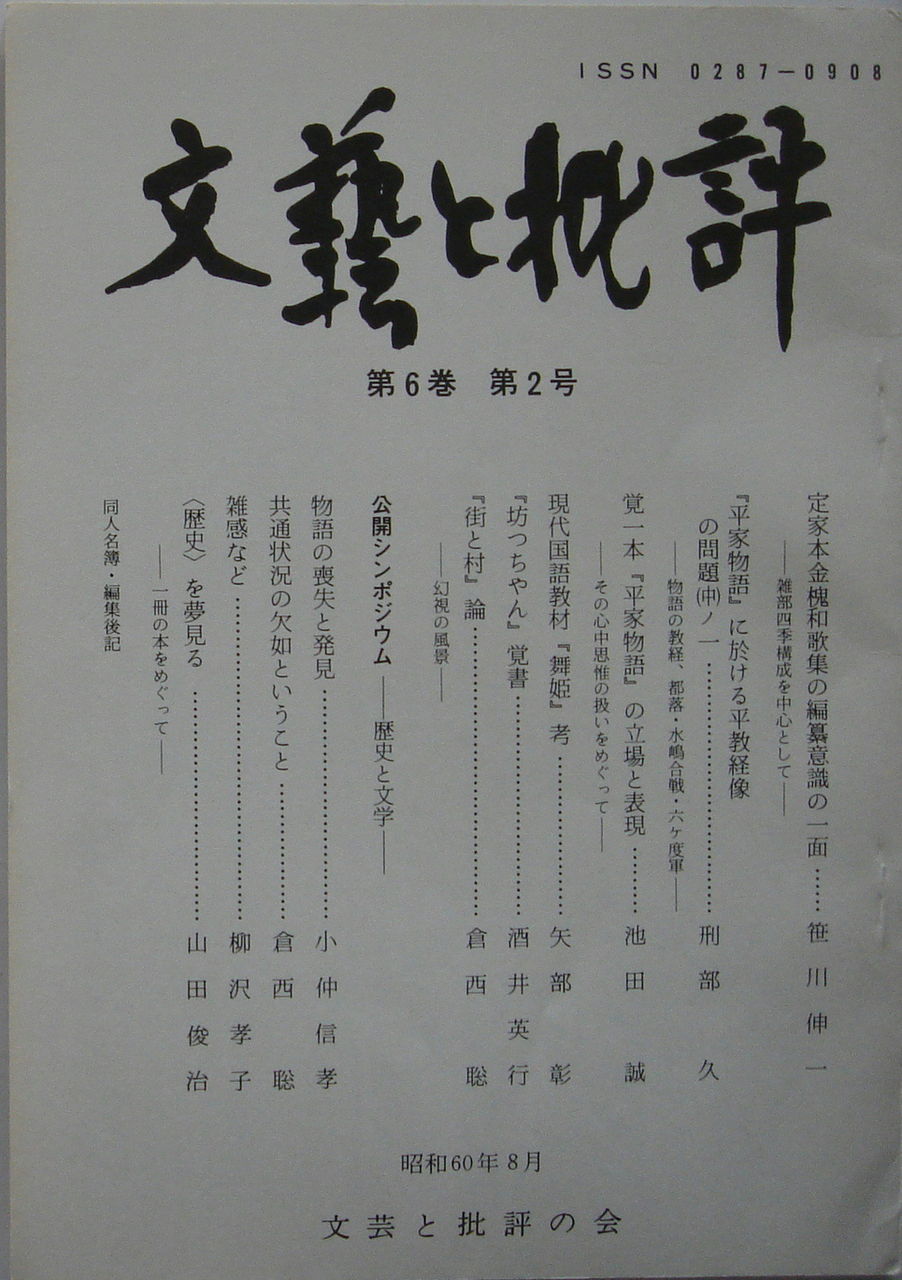 ISSN 0287-0908
文藝と批評
第6巻 第2号
定家本金槐和歌集の編纂意識の一面……笹川伸一
――雑部四季構成を中心として――
『平家物語』に於ける平教経像
の問題㈥ノ一……………………刑部 久
――物語の教経、都落・水嶋合戦・六ヶ度軍――
覚一本『平家物語』の立場と表現………池田 誠
――その心中思惟の扱いをめぐって――
現代国語教材『舞姫』考………………矢部 彰
『坊っちゃん』覚書……………………酒井英行
『街と村』論……………………………倉西 聡
――幻視の風景――
公開シンポジウム ――歴史と文学――
物語の喪失と発見………………………小仲信孝
共通状況の欠如ということ……………倉西 聡
雑感など…………………………………柳沢孝子
〈歴史〉を夢見る………………………山田俊治
――一冊の本をめぐって――
同人名簿・編集後記
昭和60年8月
文芸と批評の会